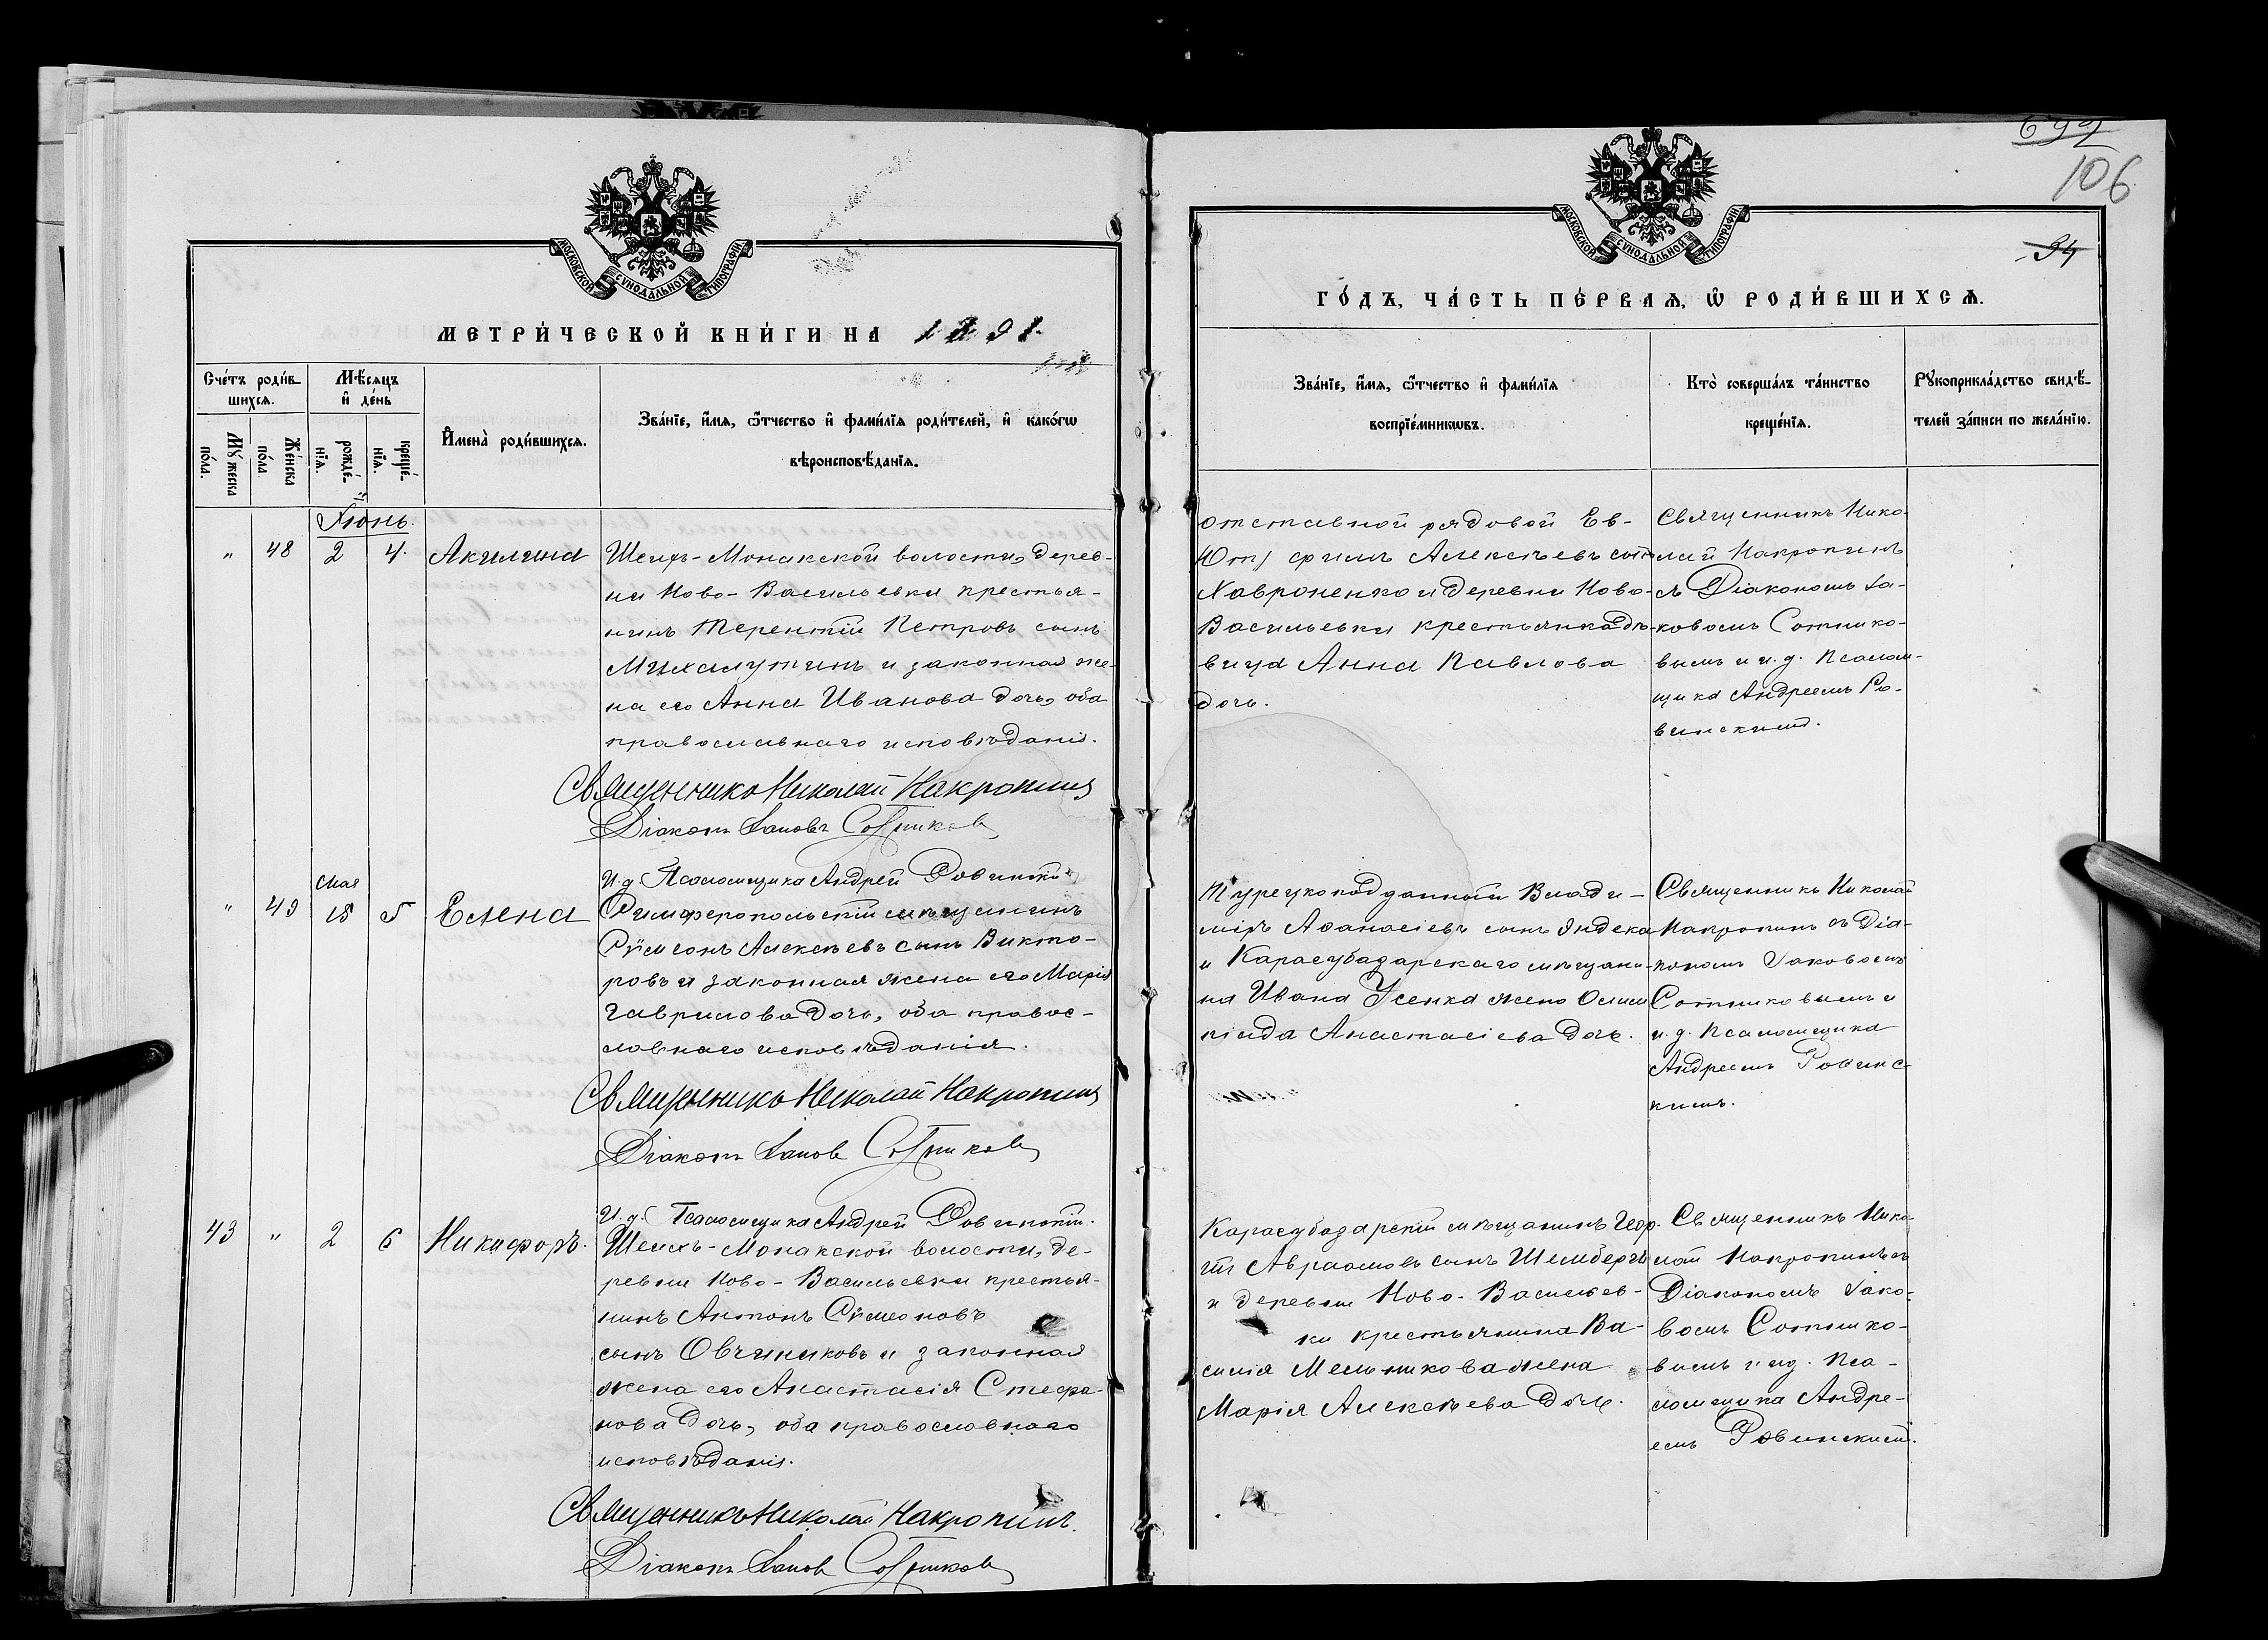 692
106
34
МОСКОВСКОЙ СѴНОДАЛЬНОЙ ТИПОГРАФІИ
МЕТРИ́ЧЕСКОЙ КНИ́ГИ НА 1891
Сче́тъ роди́в-
шихся.
Мѣ́сяцъ
и҆ де́нь
Мꙋ́жеска
по́ла.
Же́нска
по́ла
рожде́-
нїя.
креще́-
нїя.
И҆мена̀ роди́вшихся.
Зва́нїе, и҆́мя, ѻ҆́тчество и҆ фами́лїя роди́телей, и҆ како́гѡ
вѣроисповѣ́данїя.
Іюнь.
" 48 2 4. Акилина
Шеихъ-Монакской волости, дерев-
ни Ново-Васильевки крестья-
нинъ Терентій Петровъ сынъ
Михалутинъ и законная же-
на его Анна Иванова дочь, оба
православнаго исповѣданія.
Священникъ Николай Накропинъ
Діаконъ Іаковъ Сотниковъ
И. д. Псаломщика Андрей Ровинскій
Мая
" 49 18 5 Елена
Симферопольскій мѣщанинъ
Сѵмеонъ Алексѣевъ сынъ Викто-
ровъ и законная жена его Марія
Гаврилова дочь, оба правос-
лавнаго исповѣданія.
Священникъ Николай Накропинъ
Діаконъ Іаковъ Сотниковъ
И. д. Псаломщика Андрей Ровинскій.
43 " 2 6 Никифоръ.
Шеихъ-Монакской волости, де-
ревни Ново-Васильевки крестья-
нинъ Антонъ Сѵмеоновъ
сынъ Овчиниковъ и законная
жена его Анастасія Стефа-
нова дочь, оба православнаго
исповѣданія.
Священникъ Николай Накропинъ.
Діаконъ Іаковъ Сотниковъ
МОСКОВСКОЙ СѴНОДАЛЬНОЙ ТИПОГРАФІИ
ГО́ДЪ, ЧА́СТЬ ПЕ́РВАЯ, Ѡ҆ РОДИ́ВШИХСЯ.
Зва́нїе, и҆́мя, ѻ҆́тчество и҆ фами́лїя
воспрїе́мникѡвъ.
Кто̀ соверша́лъ та́инство
креще́нїя.
Рꙋкоприкла́дство свидѣ́-
телей за́писи по жела́нїю.
отставной рядовой Ев-
фимъ Алексѣевъ сынъ
Хавроненко и деревни Ново-
Васильевки крестьянка дѣ-
вица Анна Павлова
дочь.
Священникъ Нико-
лай Накропинъ
съ Діакономъ Іа-
ковомъ Сотнико-
вымъ и и. д. Псалом-
щика Андреемъ Ро-
винскимъ.
Турецкоподданный Влади-
міръ Аѳанасіевъ сынъ Яндека
и Карасубазарскаго мѣщани-
на Ивана Усенка жена Олим
піада Анастасіева дочь.
Священникъ Николай
Накропинъ съ Діа-
кономъ Іаковомъ
Сотниковымъ и
и. д. Псаломщика
Андреемъ Ровинс-
кимъ.
Карасубазарскій мѣщанинъ Геор-
гій Авраамовъ сынъ Шембергъ
и деревни Ново-Васильев-
ки крестьянина Ва-
силія Мельникова жена
Марія Алексѣева дочь.
Священникъ Нико-
лай Накропинъ съ
Діакономъ Іако-
вомъ Сотнико-
вымъ и и. д. Пса-
ломщика Андре-
емъ Ровинскимъ.